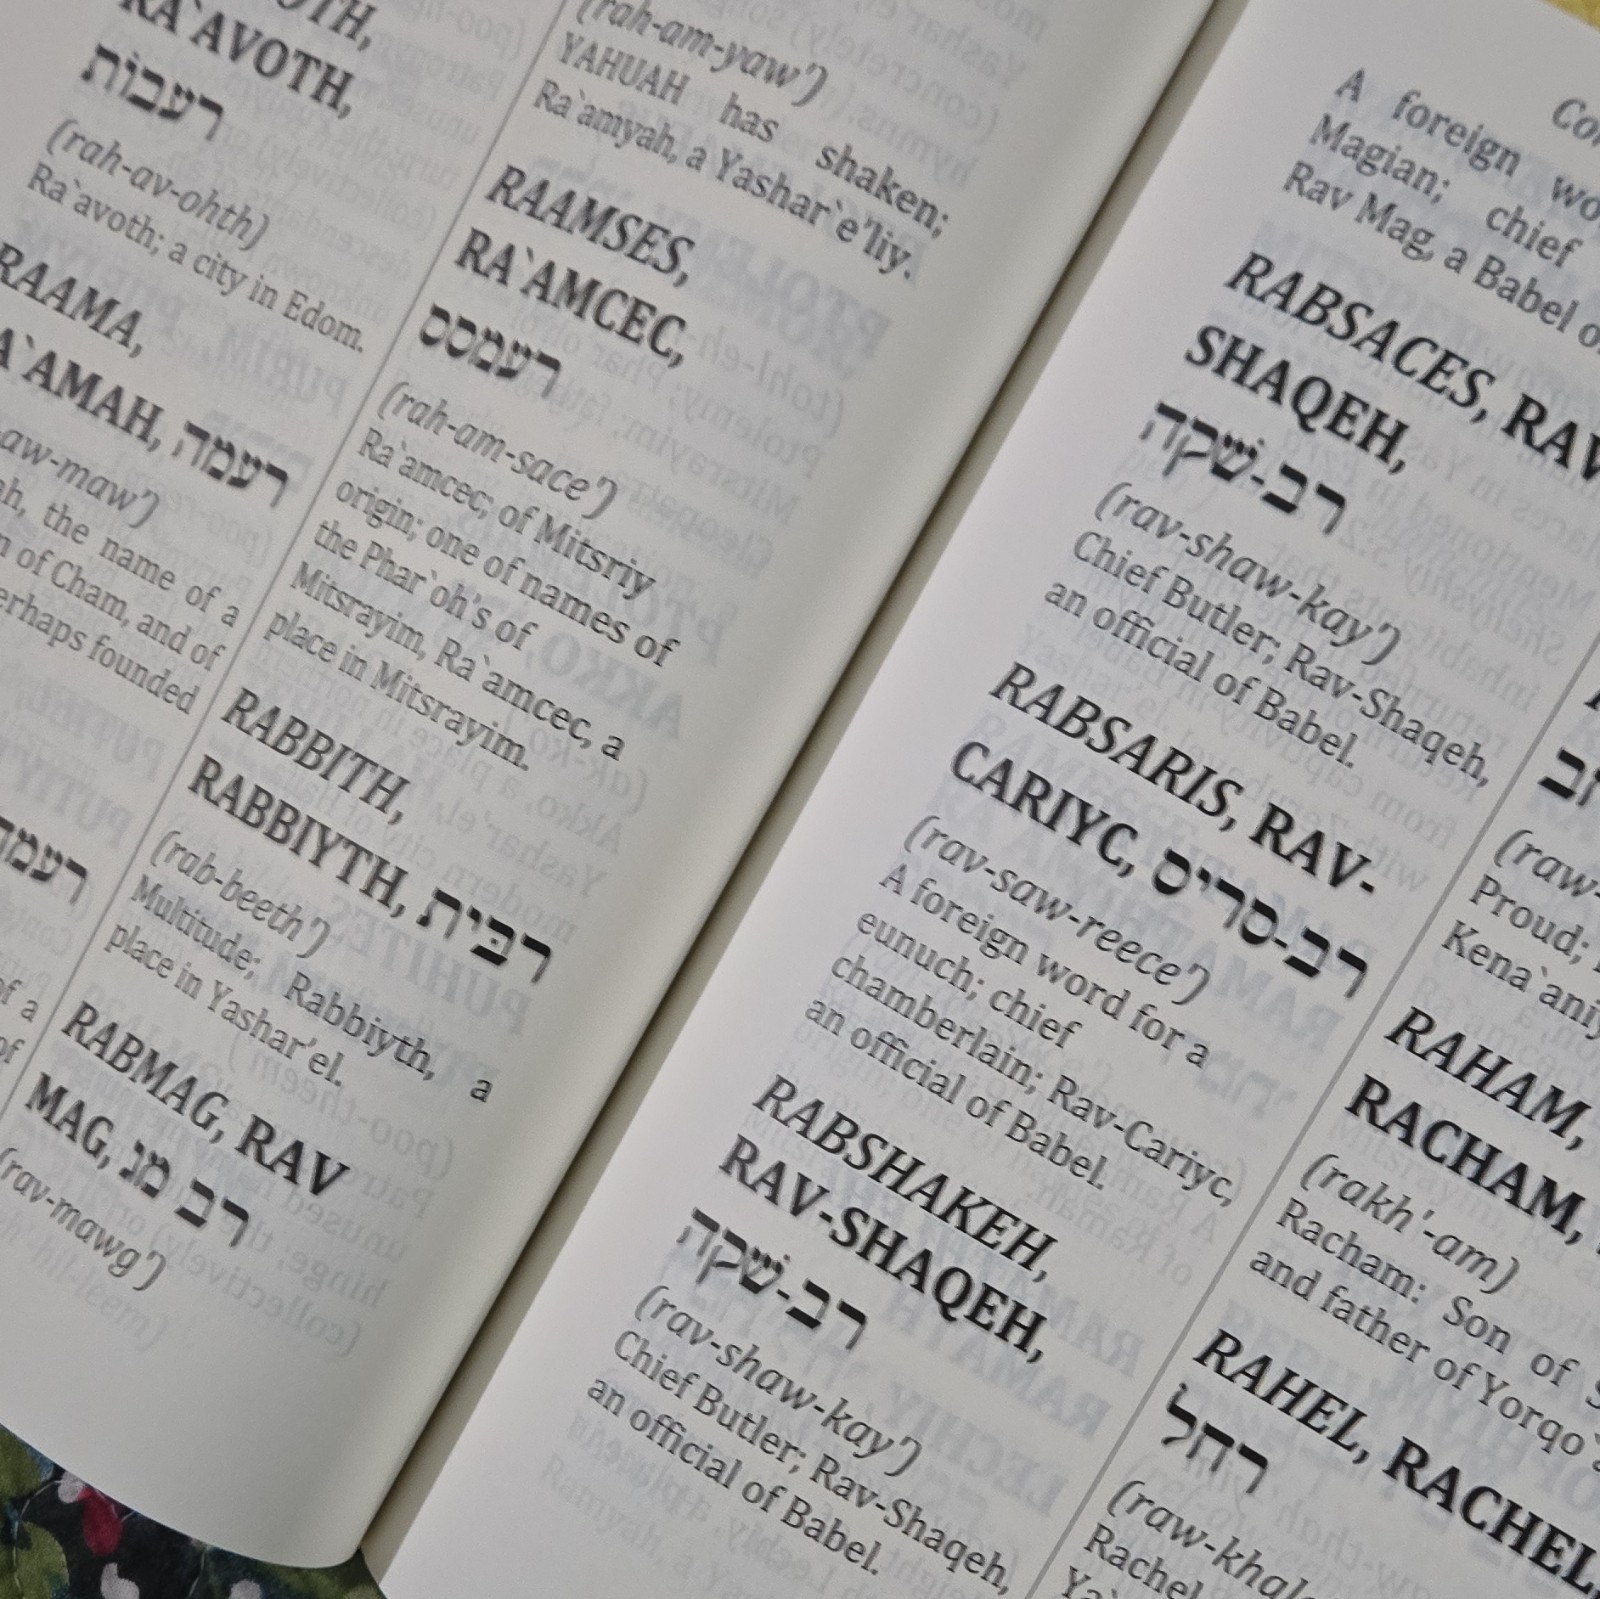 RA`AVOTH,
רעבות
(rah-av-ohth)
Ra`avoth; a city in Edom.
RAAMA,
A`AMAH, רעמה
-aw-maw')
ah, the name of a
n of Cham, and of
erhaps founded
רעמה
of a
of
(rah-am-yaw')
YAHUAH has shaken;
Ra`amyah, a Yashar`e'liy.
RAAMSES,
RA`AMCEC,
רעמסס
(rah-am-sace')
Ra`amcec; of Mitsriy
origin; one of names of
the Phar`oh's of
Mitsrayim, Ra`amcec, a
place in Mitsrayim.
RABBITH,
RABBIYTH, רבית
(rab-beeth')
Multitude; Rabbiyth, a
place in Yashar'el.
RABMAG, RAV
MAG, רב מג
(rav-mawg')
A foreign
Magian; chief
Rav Mag, a Babel
RABSACES, RAV
SHAQEH,
רב-שקה
(rav-shaw-kay')
Chief Butler; Rav-Shaqeh,
an official of Babel.
RABSARIS, RAV-
CARIYC, רב-סריס
(rav-saw-reece')
A foreign word for a
eunuch; chief
chamberlain; Rav-Cariyc,
an official of Babel.
RABSHAKEH,
RAV-SHAQEH,
רב-שקה
(rav-shaw-kay')
Chief Butler; Rav-Shaqeh,
an official of Babel.
(raw-
Proud;
Kena`aniy
RAHAM,
RACHAM,
(rakh'-am)
Racham: Son of
and father of Yorqo`
RAHEL, RACHEL,
רחל
(raw-khale
Rachel
Ya`